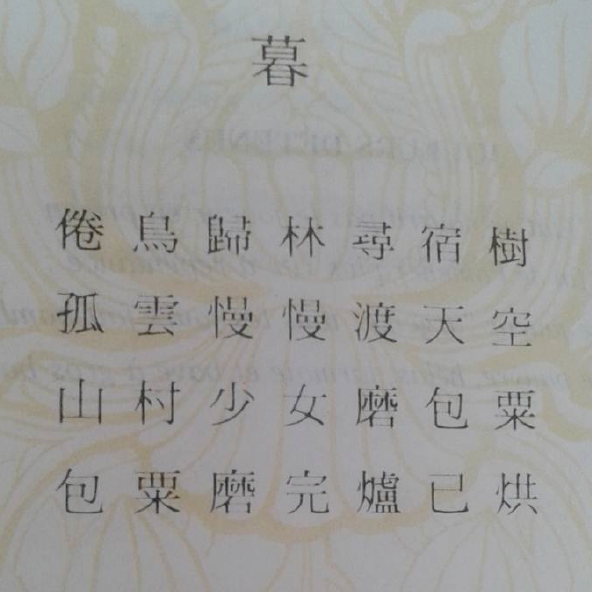 暮
倦鳥歸林尋宿樹
孤雲慢慢渡天空
山村少女磨包粟
包粟磨完爐已烘